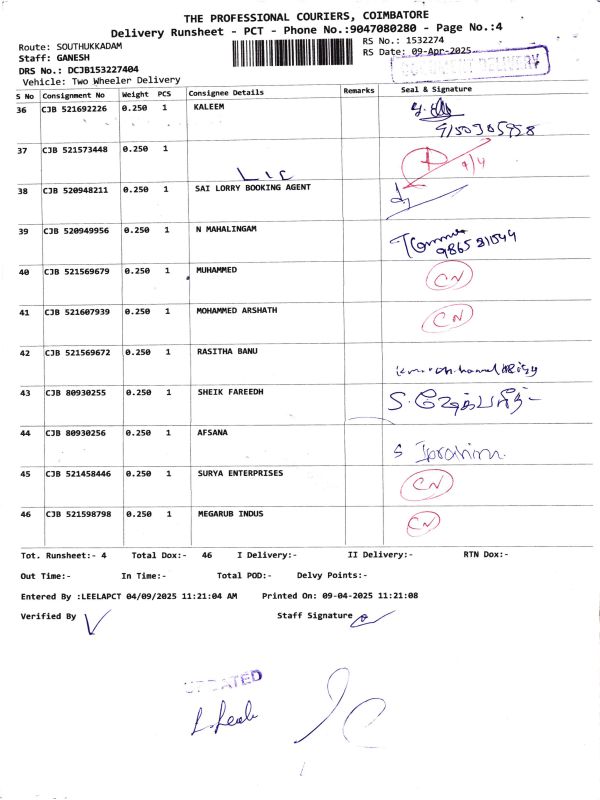 THE PROFESSIONAL COURIERS, COIMBATORE
Delivery Runsheet - PCT - Phone No.:9047080280 - Page No.:4
Route: SOUTHUKKADAM
RS No.: 1532274
Staff: GANESH
RS Date: 09-Apr-2025
DRS No.: DCJB153227404
Vehicle: Two Wheeler Delivery
S No Consignment No Weight PCS Consignee Details Remarks Seal & Signature
36 CJB 521692226 0.250 1 KALEEM
9150305958
37 CJB 521573448 0.250 1
LIC 9/4
38 CJB 520948211 0.250 1 SAI LORRY BOOKING AGENT
39 CJB 520949956 0.250 1 N MAHALINGAM
40 CJB 521569679 0.250 1 MUHAMMED CN
41 CJB 521607939 0.250 1 MOHAMMED ARSHATH CN
42 CJB 521569672 0.250 1 RASITHA BANU
43 CJB 80930255 0.250 1 SHEIK FAREEDH
44 CJB 80930256 0.250 1 AFSANA
S Ibrahim
45 CJB 521458446 0.250 1 SURYA ENTERPRISES CN
46 CJB 521598798 0.250 1 MEGARUB INDUS CN
Tot. Runsheet:- 4 Total Dox:- 46 I Delivery:- II Delivery:- RTN Dox:-
Out Time:- In Time:- Total POD:- Delvy Points:-
Entered By :LEELAPCT 04/09/2025 11:21:04 AM Printed On: 09-04-2025 11:21:08
Verified By Staff Signature
UPDATED